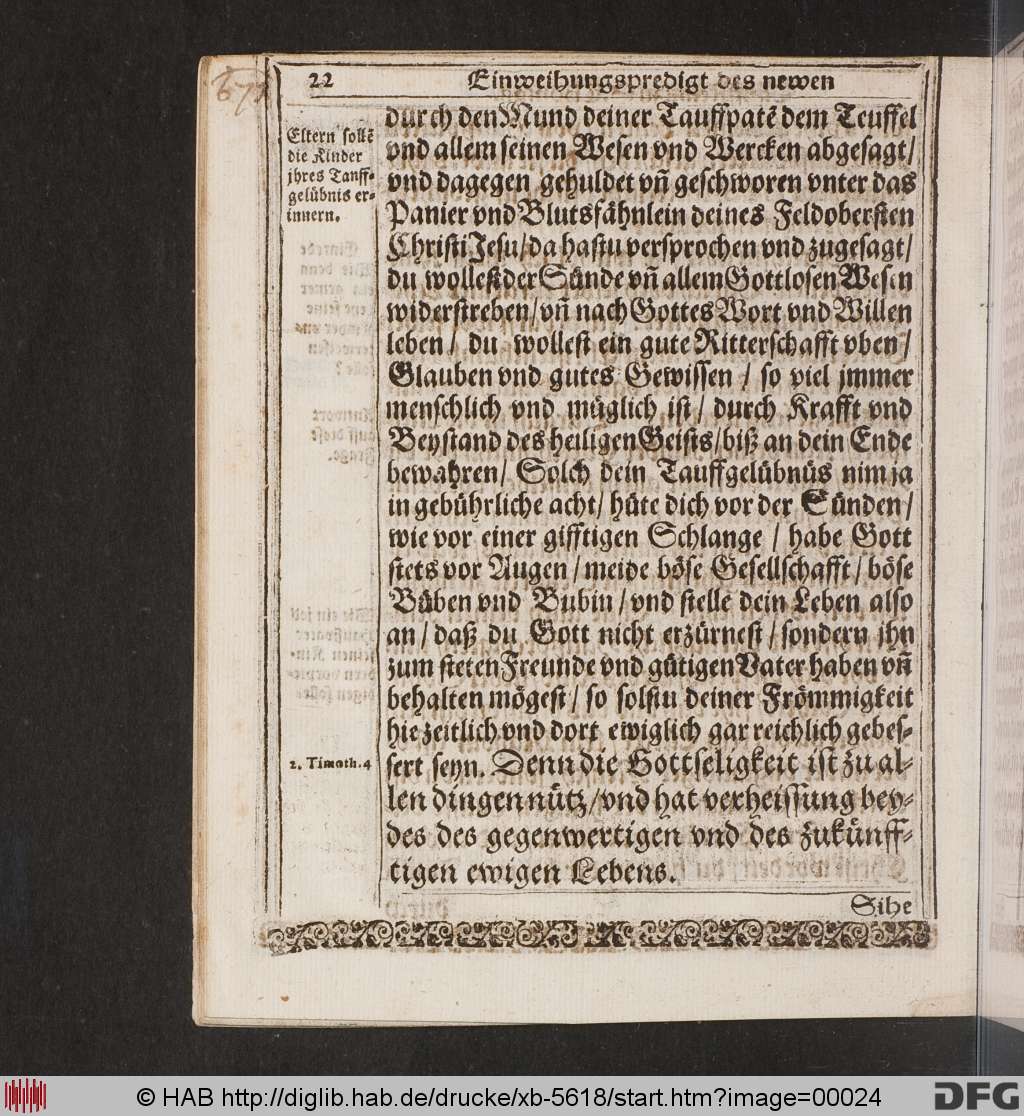 22 Einweihungspredigt des newen
Eltern sollẽ
die Kinder
jhres Tauff-
gelübnis er-
innern.
durch den Mund deiner Tauffpatẽ dem Teuffel
vnd allem seinen Wesen vnd Wercken abgesagt/
vnd dagegen gehuldet vñ geschworen vnter das
Panier vnd Blutsfähnlein deines Feldobersten
Christi Jesu/ da hastu versprochen vnd zugesagt/
du wollest der Sünde vñ allem Gottlosen Wesen
widerstreben/ vñ nach Gottes Wort vnd Willen
leben/ du wollest ein gute Ritterschafft vben/
Glauben vnd gutes Gewissen/ so viel jmmer
menschlich vnd müglich ist/ durch Krafft vnd
Beystand des heiligen Geists/ biß an dein Ende
bewahren/ Solch dein Tauffgelübnüs nim ja
in gebührliche acht/ hüte dich vor der Sünden/
wie vor einer gifftigen Schlange/ habe Gott
stets vor Augen/ meide böse Gesellschafft/ böse
Büben vnd Bubin/ vnd stelle dein Leben also
an/ daß du Gott nicht erzürnest/ sondern jhn
zum steten Freunde vnd gütigen Vater haben vñ
behalten mögest/ so solstu deiner Frömmigkeit
hie zeitlich vnd dort ewiglich gar reichlich gebes-
2. Timoth. 4
sert seyn. Denn die Gottseligkeit ist zu al-
len dingen nütz/ vnd hat verheissung bey-
des des gegenwertigen vnd des zukünff-
tigen ewigen Lebens.
Sihe
© HAB http://diglib.hab.de/drucke/xb-5618/start.htm?image=00024
DFG